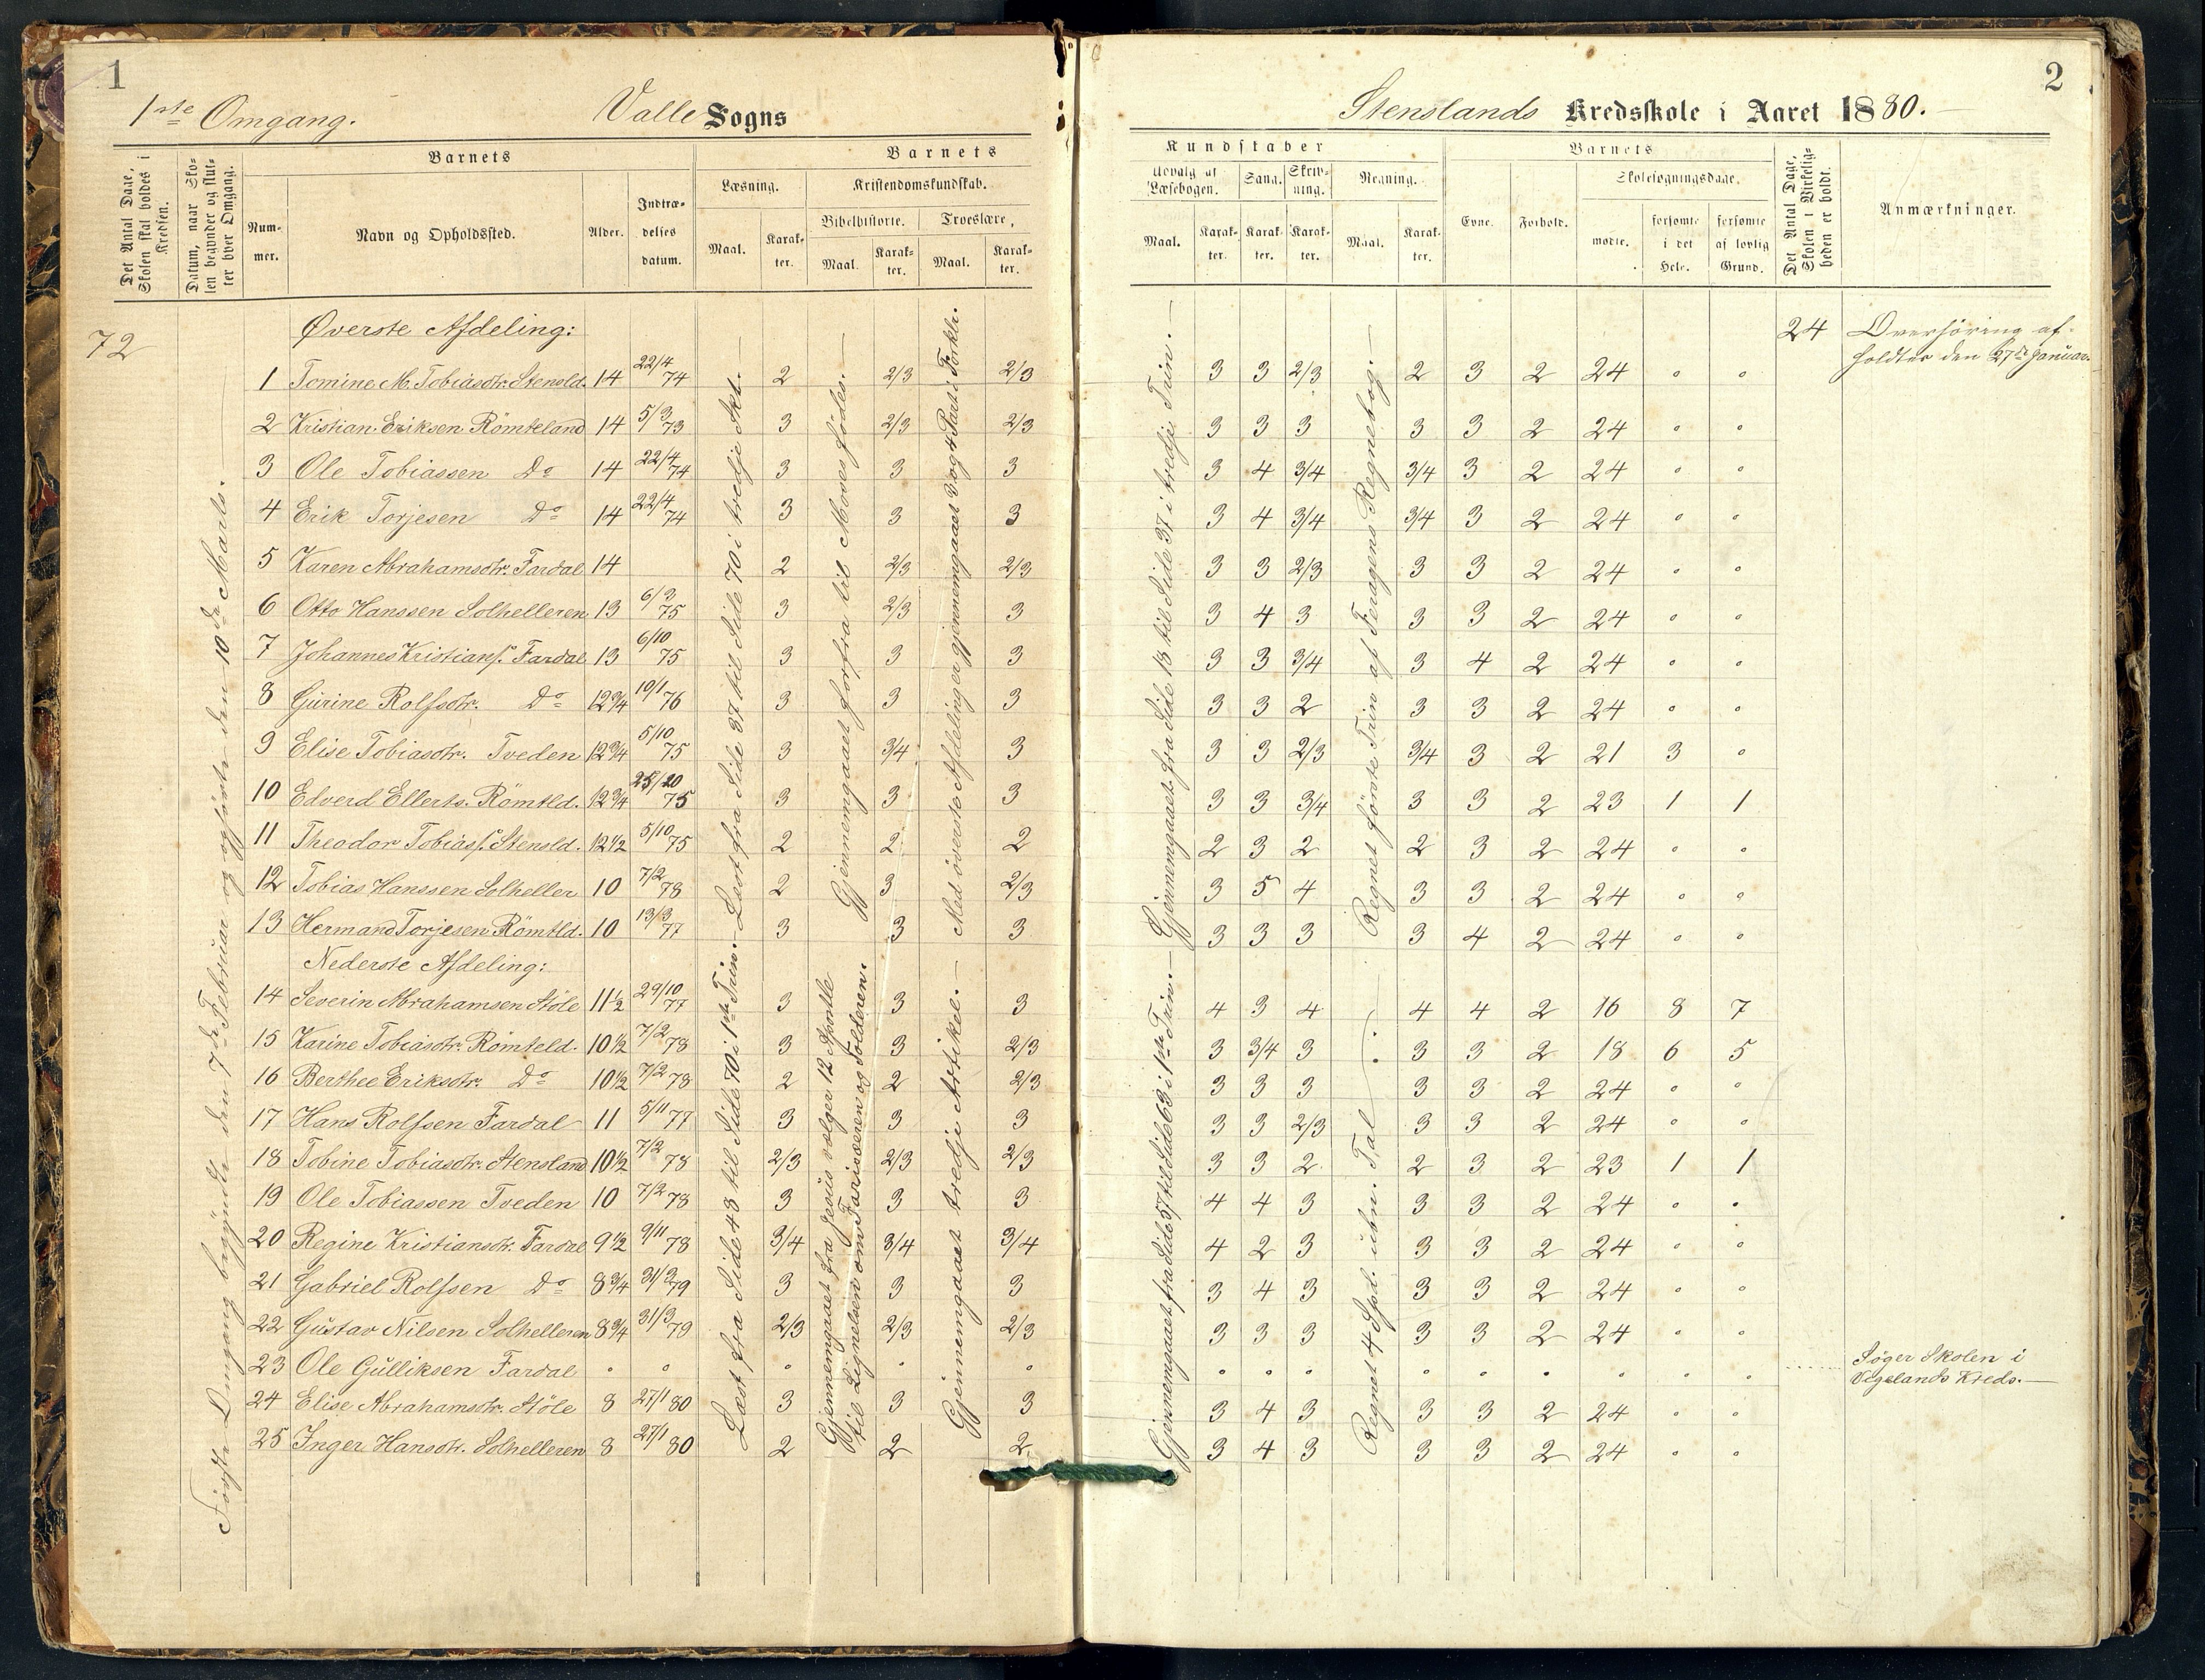 1
1ste Omgang.
Valle Sogns
Det Antal Dage, Skolen skal holdes i Kredsen.
Datum, naar Skolen begynder og slutter hver Omgang.
Barnets
Nummer.
Navn og Opholdssted.
Alder.
Indtrædelsesdatum.
Barnets
Læsning.
Maal.
Karakter.
Kristendomskundskab.
Bibelhistorie.
Maal.
Karakter.
Troeslære,
Maal.
Karakter.
72
Første Omgang begyndte den 7de Februar og ophørte den 10de Marts.
Øverste Afdeling:
1 Tomine M. Tobiasdtr. Stensld. 14 22/4 74 2 2/3 2/3
2 Kristian Eriksen Römteland 14 5/3 73 3 2/3 2/3
3 Ole Tobiassen Do 14 22/4 74 3 3 3
4 Erik Torjesen Do 14 22/4 74 3 3 3
5 Karen Abrahamsdtr. Fardal 14 2 2/3 2/3
6 Otto Hanssen Solhelleren 13 6/3 75 3 2/3 3
7 Johannes Kristians. Fardal 13 6/10 75 3 3 3
8 Gurine Rolfsdtr. Do 12 3/4 10/1 76 3 3 3
9 Elise Tobiasdtr. Tveden 12 3/4 5/10 75 3 3/4 3
10 Edverd Ellerts. Römtld. 12 3/4 25/10 75 3 3 3
11 Theodor Tobiass. Stensld. 12 1/2 5/10 75 2 2 2
12 Tobias Hanssen Solheller 10 7/2 78 2 3 2/3
13 Hermand Torjesen Römtld. 10 13/3 77 3 3 3
Nederste Afdeling:
14 Severin Abrahamsen Støle 11 1/2 29/10 77 3 3 3
15 Karine Tobiasdtr. Römteld. 10 1/2 7/2 78 3 3 2/3
16 Berthee Eriksdtr. Do 10 1/2 7/2 78 2 2 2/3
17 Hans Rolfsen Fardal 11 5/11 77 3 3 3
18 Tobine Tobiasdtr. Stensland 10 1/2 7/2 78 2/3 2/3 2/3
19 Ole Tobiassen Tveden 10 7/2 78 3 3 3
20 Regine Kristiansdtr. Fardal 9 1/2 9/11 78 3/4 3/4 3/4
21 Gabriel Rolfsen Do 8 3/4 31/3 79 3 3 3
22 Gustav Nilsen Solhelleren 8 3/4 31/3 79 2/3 2/3 2/3
23 Ole Gulliksen Fardal
24 Elise Abrahamsdtr. Støle 8 27/1 80 3 3 3
25 Inger Hansdtr. Solhelleren 8 27/1 80 2 2 2
Læst fra Side 37 til Side 70 i tredje Skd.
Læst fra Side 48 til Side 70 i 1ste Trin.
Gjennemgaaet forfra til Moses fødes.
Gjennemgaaet fra Jesus vælger 12 Apostle
til Lignelsen om Farisæeren og Tolderen.
Med øverste Afdeling er gjennemgaaet 3 og 4 Part i Forklr.
Gjennemgaaet tredje Artikel.
2
Stenslands Kredsskole i Aaret 1880.
Kundskaber
Udvalg af Læsebogen.
Maal.
Karakter.
Sang.
Karakter.
Skrivning.
Karakter.
Regning.
Maal.
Karakter.
Barnets
Evne.
Forhold.
Skolesøgningsdage.
mødte.
forsømte i det Hele.
forsømte af lovlig Grund.
Det Antal Dage, Skolen i Virkeligheden er holdt.
Anmærkninger.
24 Overhöring af-
holdtes den 27de Januar.
3 3 2/3 2 3 2 24
3 3 3 3 3 2 24
3 4 3/4 3/4 3 2 24
3 4 3/4 3/4 3 2 24
3 3 2/3 3 3 2 24
3 4 3 3 3 2 24
3 3 3/4 3 4 2 24
3 3 2 3 3 2 24
3 3 2/3 3/4 3 2 21 3
3 3 3/4 3 3 2 23 1 1
2 3 2 2 3 2 24
3 5 4 3 3 2 24
3 3 3 3 4 2 24
4 3 4 4 4 2 16 8 7
3 3/4 3 3 3 2 18 6 5
3 3 3 3 3 2 24
3 3 2/3 3 3 2 24
3 3 2 2 3 2 23 1 1
4 4 3 3 3 2 24
4 2 3 3 3 2 24
3 4 3 3 3 2 24
3 3 3 3 3 2 24
Søger Skolen i
Vigelands Kreds.
3 4 3 3 3 2 24
3 4 3 3 3 2 24
Gjennemgaaet fra Side 18 til Side 37 i tredje Trin.
Gjennemgaaet fra Side 57 til Side 63 i 1ste Trin.
Regnet første Trin af Feragens Regnebog.
Regnet 4 Spd. ubn. Tal